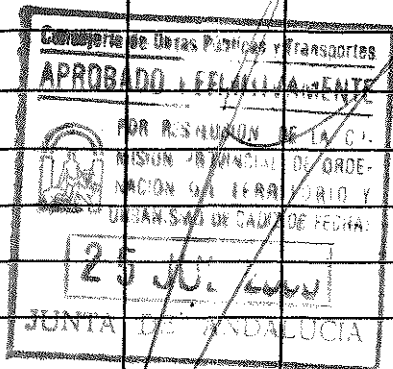 Consejería de Obras Públicas y Transportes
APROBADO DEFINITIVAMENTE
POR RESOLUCION DE LA CO-
MISION PROVINCIAL DE ORDE-
NACION DEL TERRITORIO Y
URBANISMO DE CADIZ DE FECHA:
25
JUNTA DE ANDALUCIA